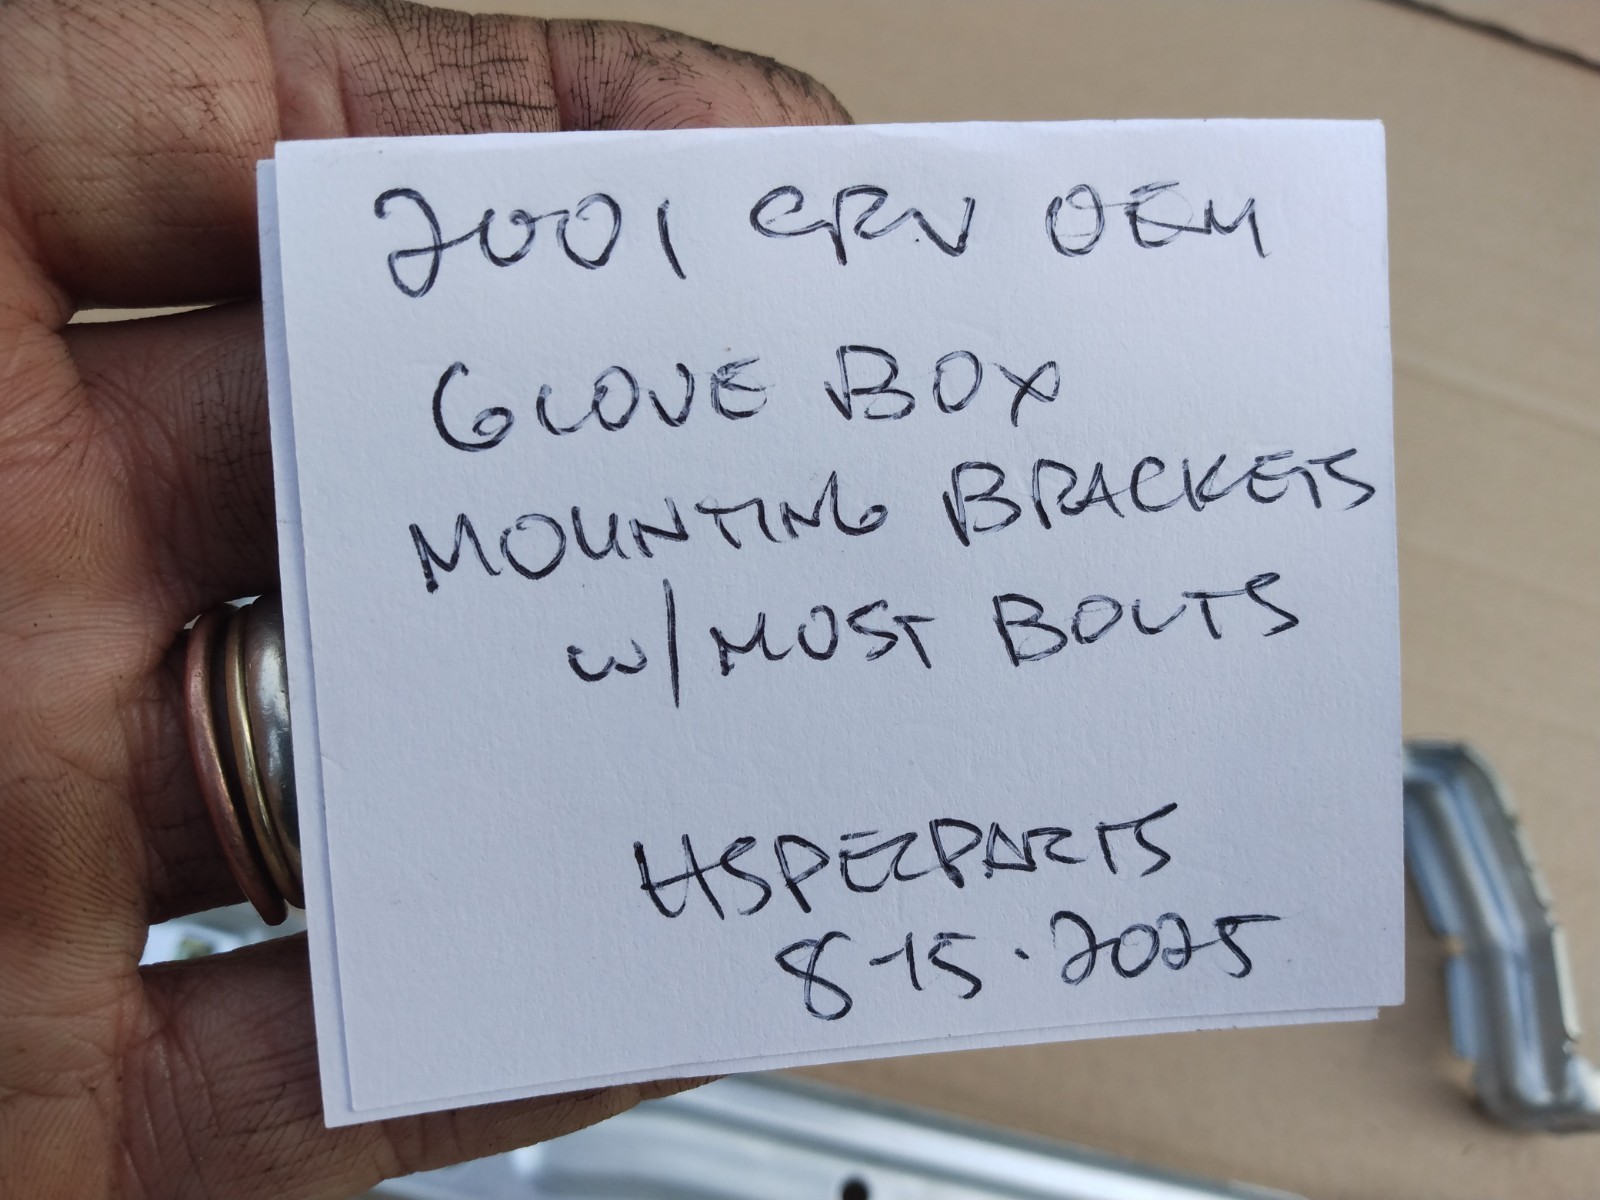 2001 CRV OEM
GLOVE BOX
MOUNTING BRACKETS
w/MOST BOLTS
HSPEZPARTS
8-15.2025